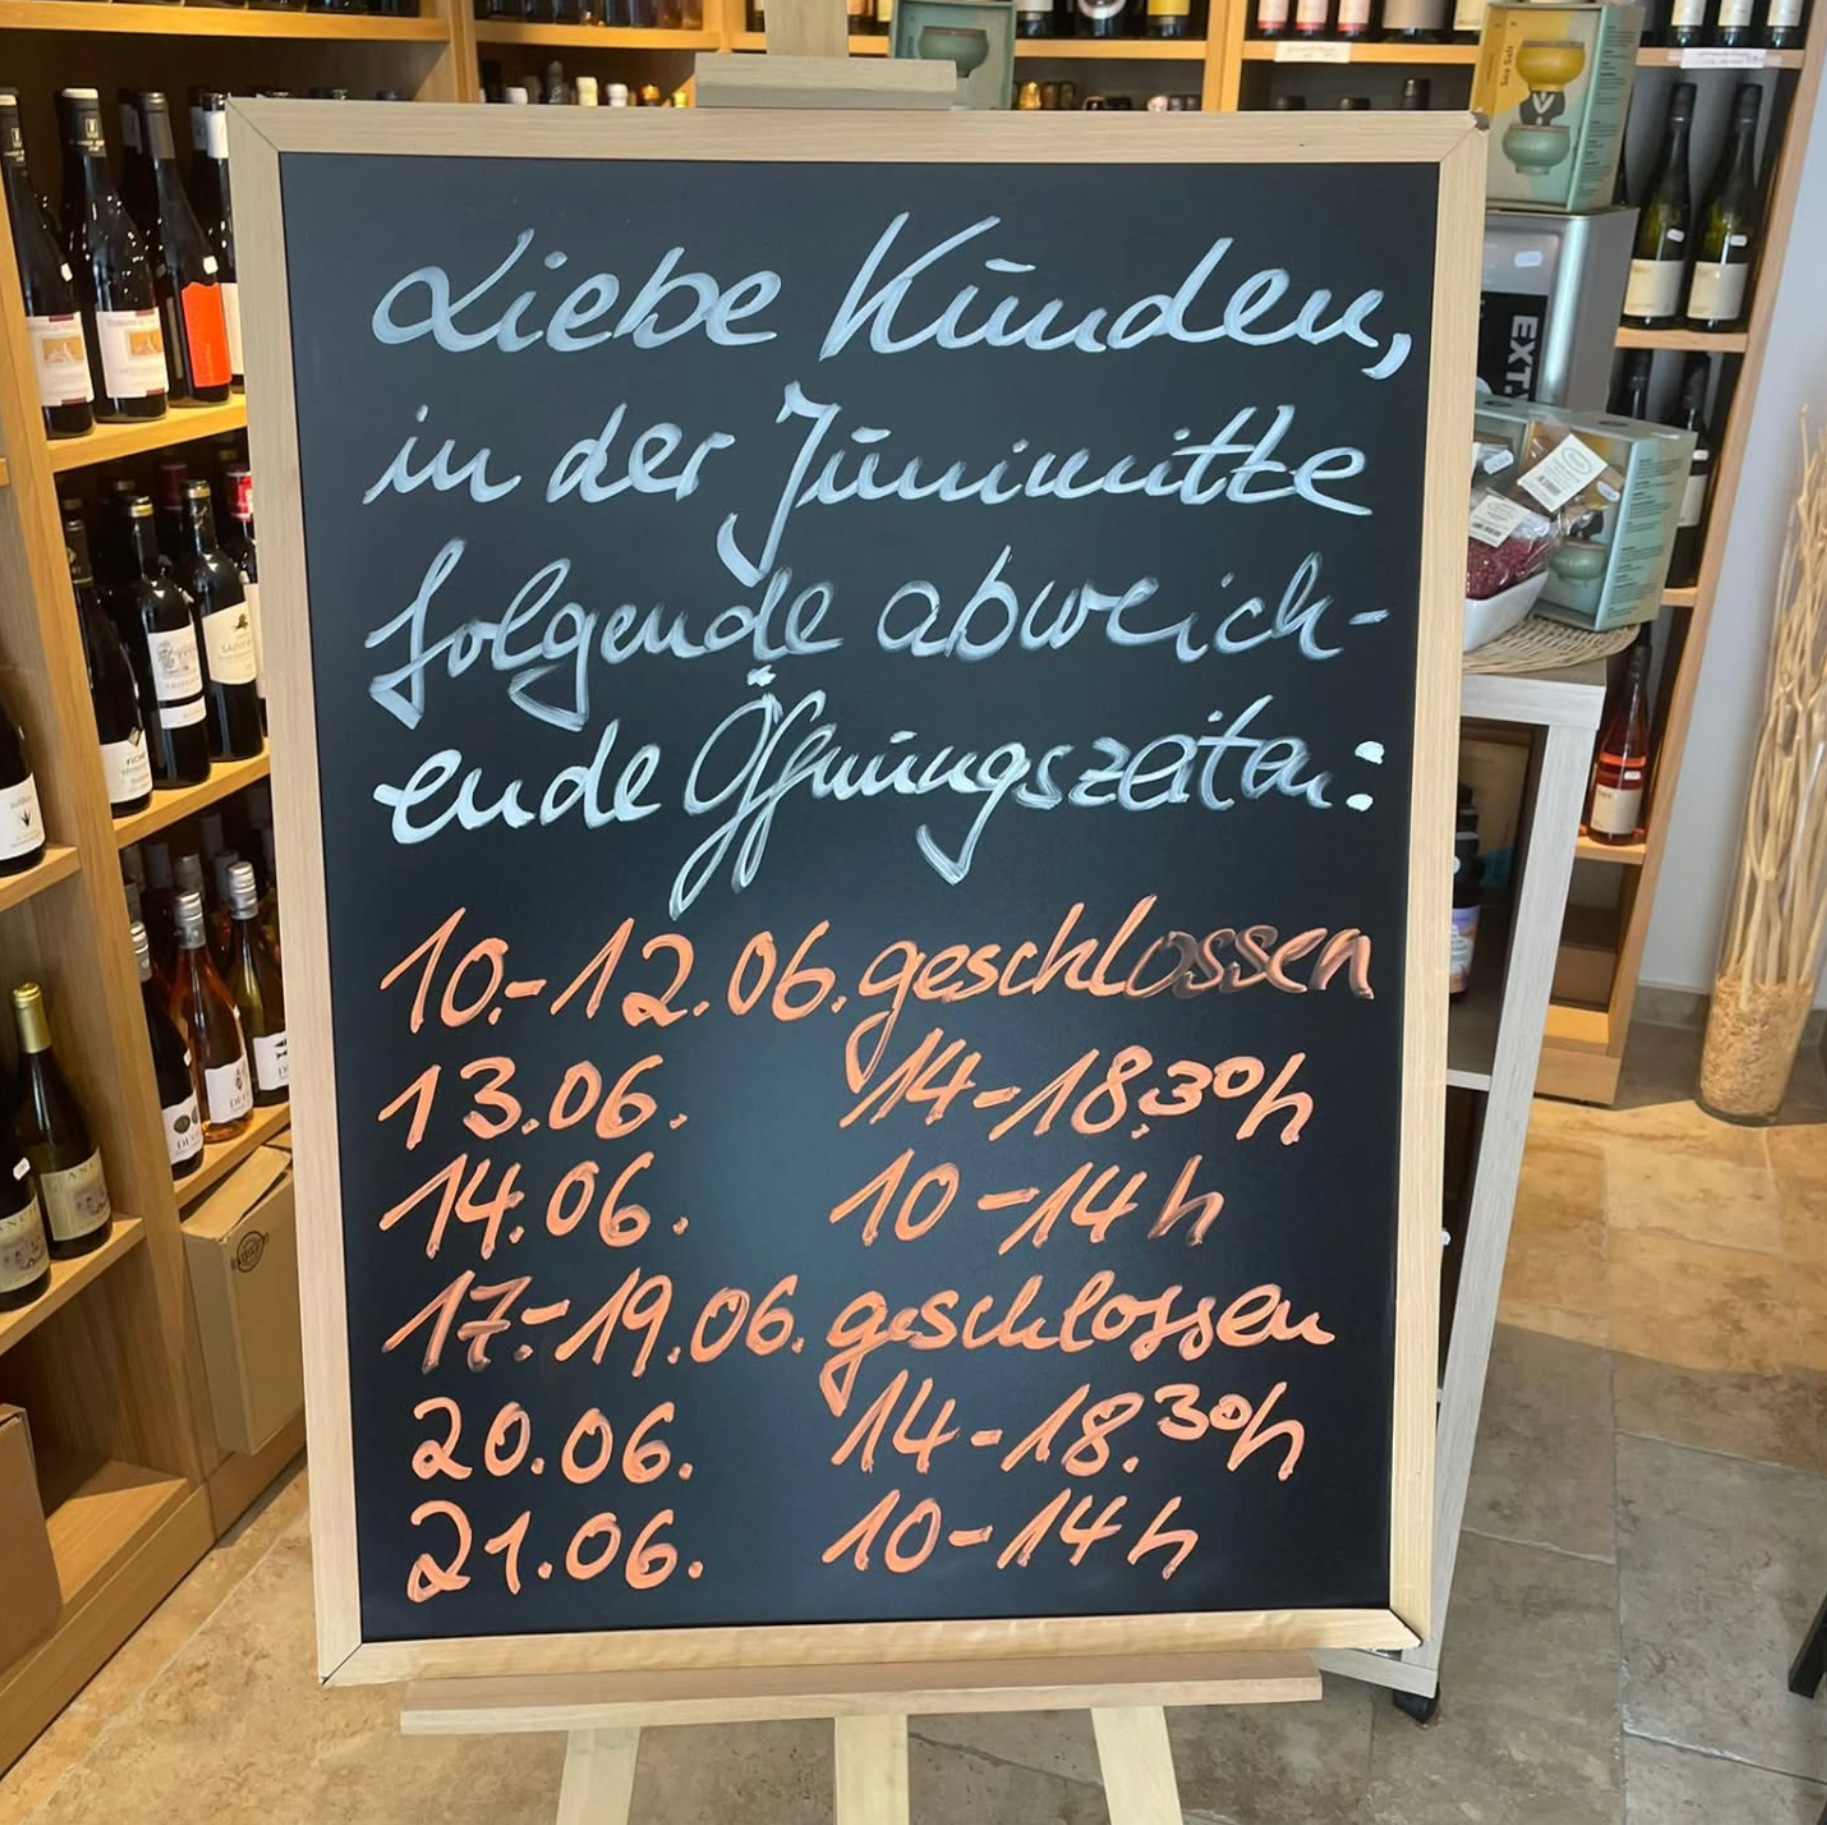 Liebe Kunden,
in der Junimitte
folgende abweich-
ende Öffnungszeiten:
10.-12.06. geschlossen
13.06. 14-18.30h
14.06. 10-14h
17.-19.06. geschlossen
20.06. 14-18.30h
21.06. 10-14h
Sea Salt
EXT